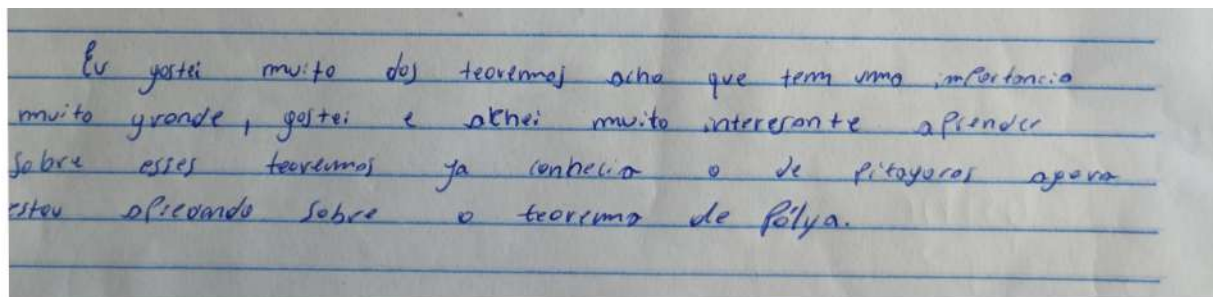 Eu gostei muito dos teoremas acho que tem uma importancia
muito grande, gostei e achei muito interesante aprender
sobre esses teoremas ja conhecia o de pitagoras agora
estou sobre o teorema de Pólya.